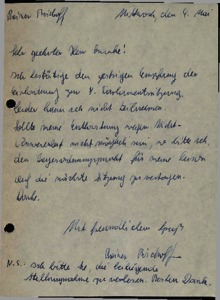 Rainer Bischoff Mittwoch den 4. Mai
Sehr geehrter Herr
Ich bestätige den gestrigen Empfang der
Einladung zum
leider kann ich nicht teilnehmen.
Sollte meine Entlastung wegen Nicht-
Anwesenheit nicht möglich sein, so bitte ich,
den Tagesordnungspunkt für meine Person
auf die nächste Sitzung zu vertagen.
Danke.
Mit freundlichem Gruß
Rainer Bischoff
N.S.: Ich bitte Sie die beiliegende
Stellungnahme zu verlesen. Besten Dank.